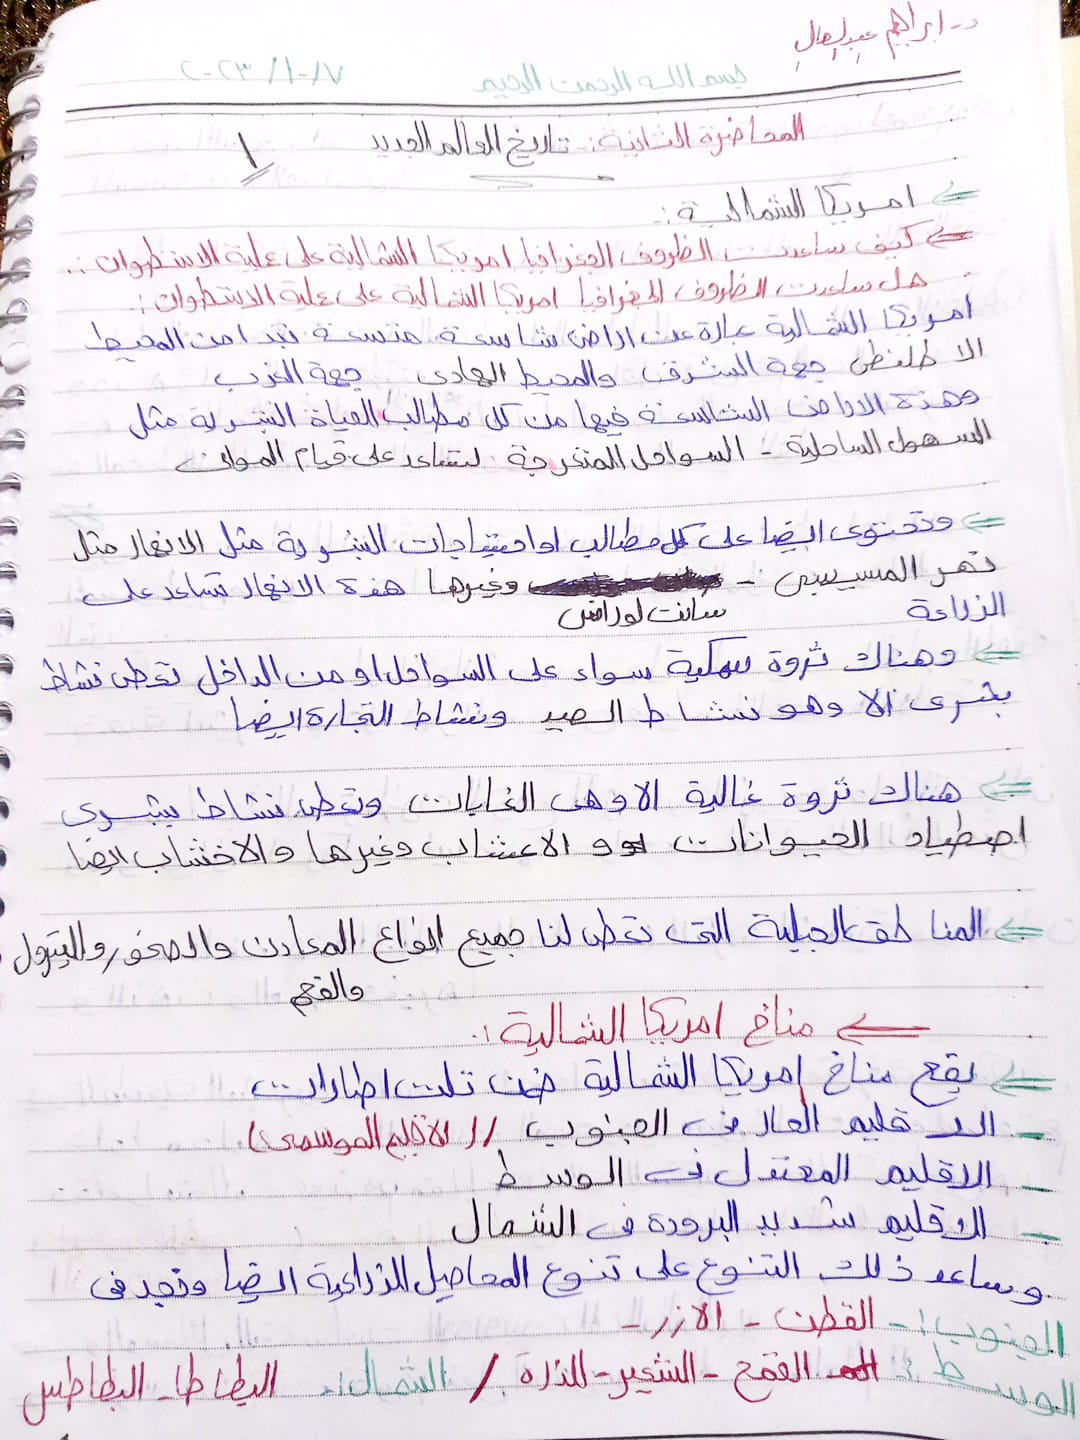 د- ابراهيم عبدالعال
بسم الله الرحمن الرحيم ١٧/١٠/٢٠٢٣
المحاضرة الثانية :- تاريخ العالم الجديد
١
امريكا الشمالية :-
كيف ساعدت الظروف الجغرافيا امريكا الشمالية على عملية الاستطوان :.
هل ساعدت الظروف الجغرافيا امريكا الشمالية على عملية الاستطوان :
امريكا الشمالية عبارة عن اراضى شاسعة متسعة تبدا من المحيط
الاطلنطى جهة الشرق والمحيط الهادى جهة الغرب
وهذة الاراضى الشاسعة فيها من كل مطالب الحياة البشرية مثل
السهول الساحلية - السواحل المتعرجة لتساعد على قيام الموانى
وتحتوى ايضا على كل مطالب او احتياجات البشرية مثل الانهار مثل
نهر المسيسبى - وغيرها هذة الانهار تساعد على
سانت لورانس
الزراعة
وهناك ثروة سمكية سواء على السواحل او من الداخل تعطى نشاط
بشرى الا وهو نشاط الصيد ونشاط التجارة ايضا
هناك ثروة غالية الا وهى الغابات وتعطى نشاط بشرى
اصطياد الحيوانات و الاعشاب وغيرها والاخشاب ايضا
المناطق الجبلية التى تعطى لنا جميع انواع المعادن والصخور والبترول
والفحم
مناخ امريكا الشمالية :.
يقع مناخ امريكا الشمالية ضمن تلت اطارات
- الاقليم الحار فى الجنوب // (الاقليم الموسمى)
- الاقليم المعتدل فى الوسط
- الاقليم شديد البرودة فى الشمال
وساعد ذلك التنوع على تنوع المحاصيل الزراعية ايضا ونجد فى
الجنوب :- القطن - الارز -
الوسط : القمح - الشعير - الذرة / الشمال :. البطاطا - البطاطس